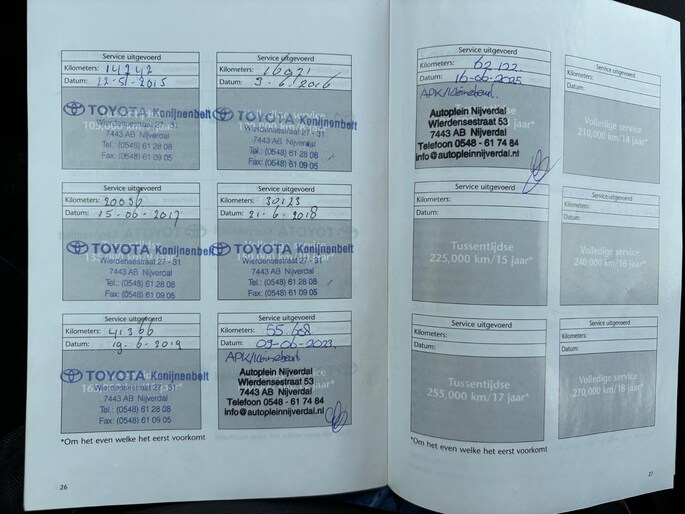 Service uitgevoerd
Kilometers: 14242
Datum: 22-51-2015
TOYOTA Konijnenbelt
Wierdensestraat 27 - 31
7443 AB Nijverdal
Tel.: (0548) 61 28 08
Fax: (0548) 61 09 05
Service uitgevoerd
Kilometers: 16921
Datum: 9.6.2016
TOYOTA Konijnenbelt
Wierdensestraat 27 - 31
7443 AB Nijverdal
Tel.: (0548) 61 28 08
Fax: (0548) 61 09 05
Service uitgevoerd
Kilometers: 20056
Datum: 15-06-2017
TOYOTA Konijnenbelt
Wierdensestraat 27 - 31
7443 AB Nijverdal
Tel.: (0548) 61 28 08
Fax: (0548) 61 09 05
Service uitgevoerd
Kilometers: 30123
Datum: 21.6.2018
TOYOTA Konijnenbelt
Wierdensestraat 27 - 31
7443 AB Nijverdal
Tel.: (0548) 61 28 08
Fax: (0548) 61 09 05
Service uitgevoerd
Kilometers: 41366
Datum: 19-6-2019
TOYOTA Konijnenbelt
Wierdensestraat 27 - 31
7443 AB Nijverdal
Tel.: (0548) 61 28 08
Fax: (0548) 61 09 05
Service uitgevoerd
Kilometers: 55.688
Datum: 09-06-2023.
APK/kleinebeurt
Autoplein Nijverdal
Wierdensestraat 53
7443 AB Nijverdal
Telefoon 0548 - 61 74 84
info@autopleinnijverdal.nl
*Om het even welke het eerst voorkomt
26
Service uitgevoerd
Kilometers: 62122
Datum: 16-06-2025
APK/kleinebeurt.
Autoplein Nijverdal
Wierdensestraat 53
7443 AB Nijverdal
Telefoon 0548 - 61 74 84
info@autopleinnijverdal.nl
Service uitgevoerd
Kilometers:
Datum:
Volledige service
210,000 km/14 jaar*
Service uitgevoerd
Kilometers:
Datum:
Tussentijdse
225,000 km/15 jaar*
Service uitgevoerd
Kilometers:
Datum:
Volledige service
240,000 km/16 jaar*
Service uitgevoerd
Kilometers:
Datum:
Tussentijdse
255,000 km/17 jaar*
Service uitgevoerd
Kilometers:
Datum:
Volledige service
270,000 km/18 jaar*
*Om het even welke het eerst voorkomt
27